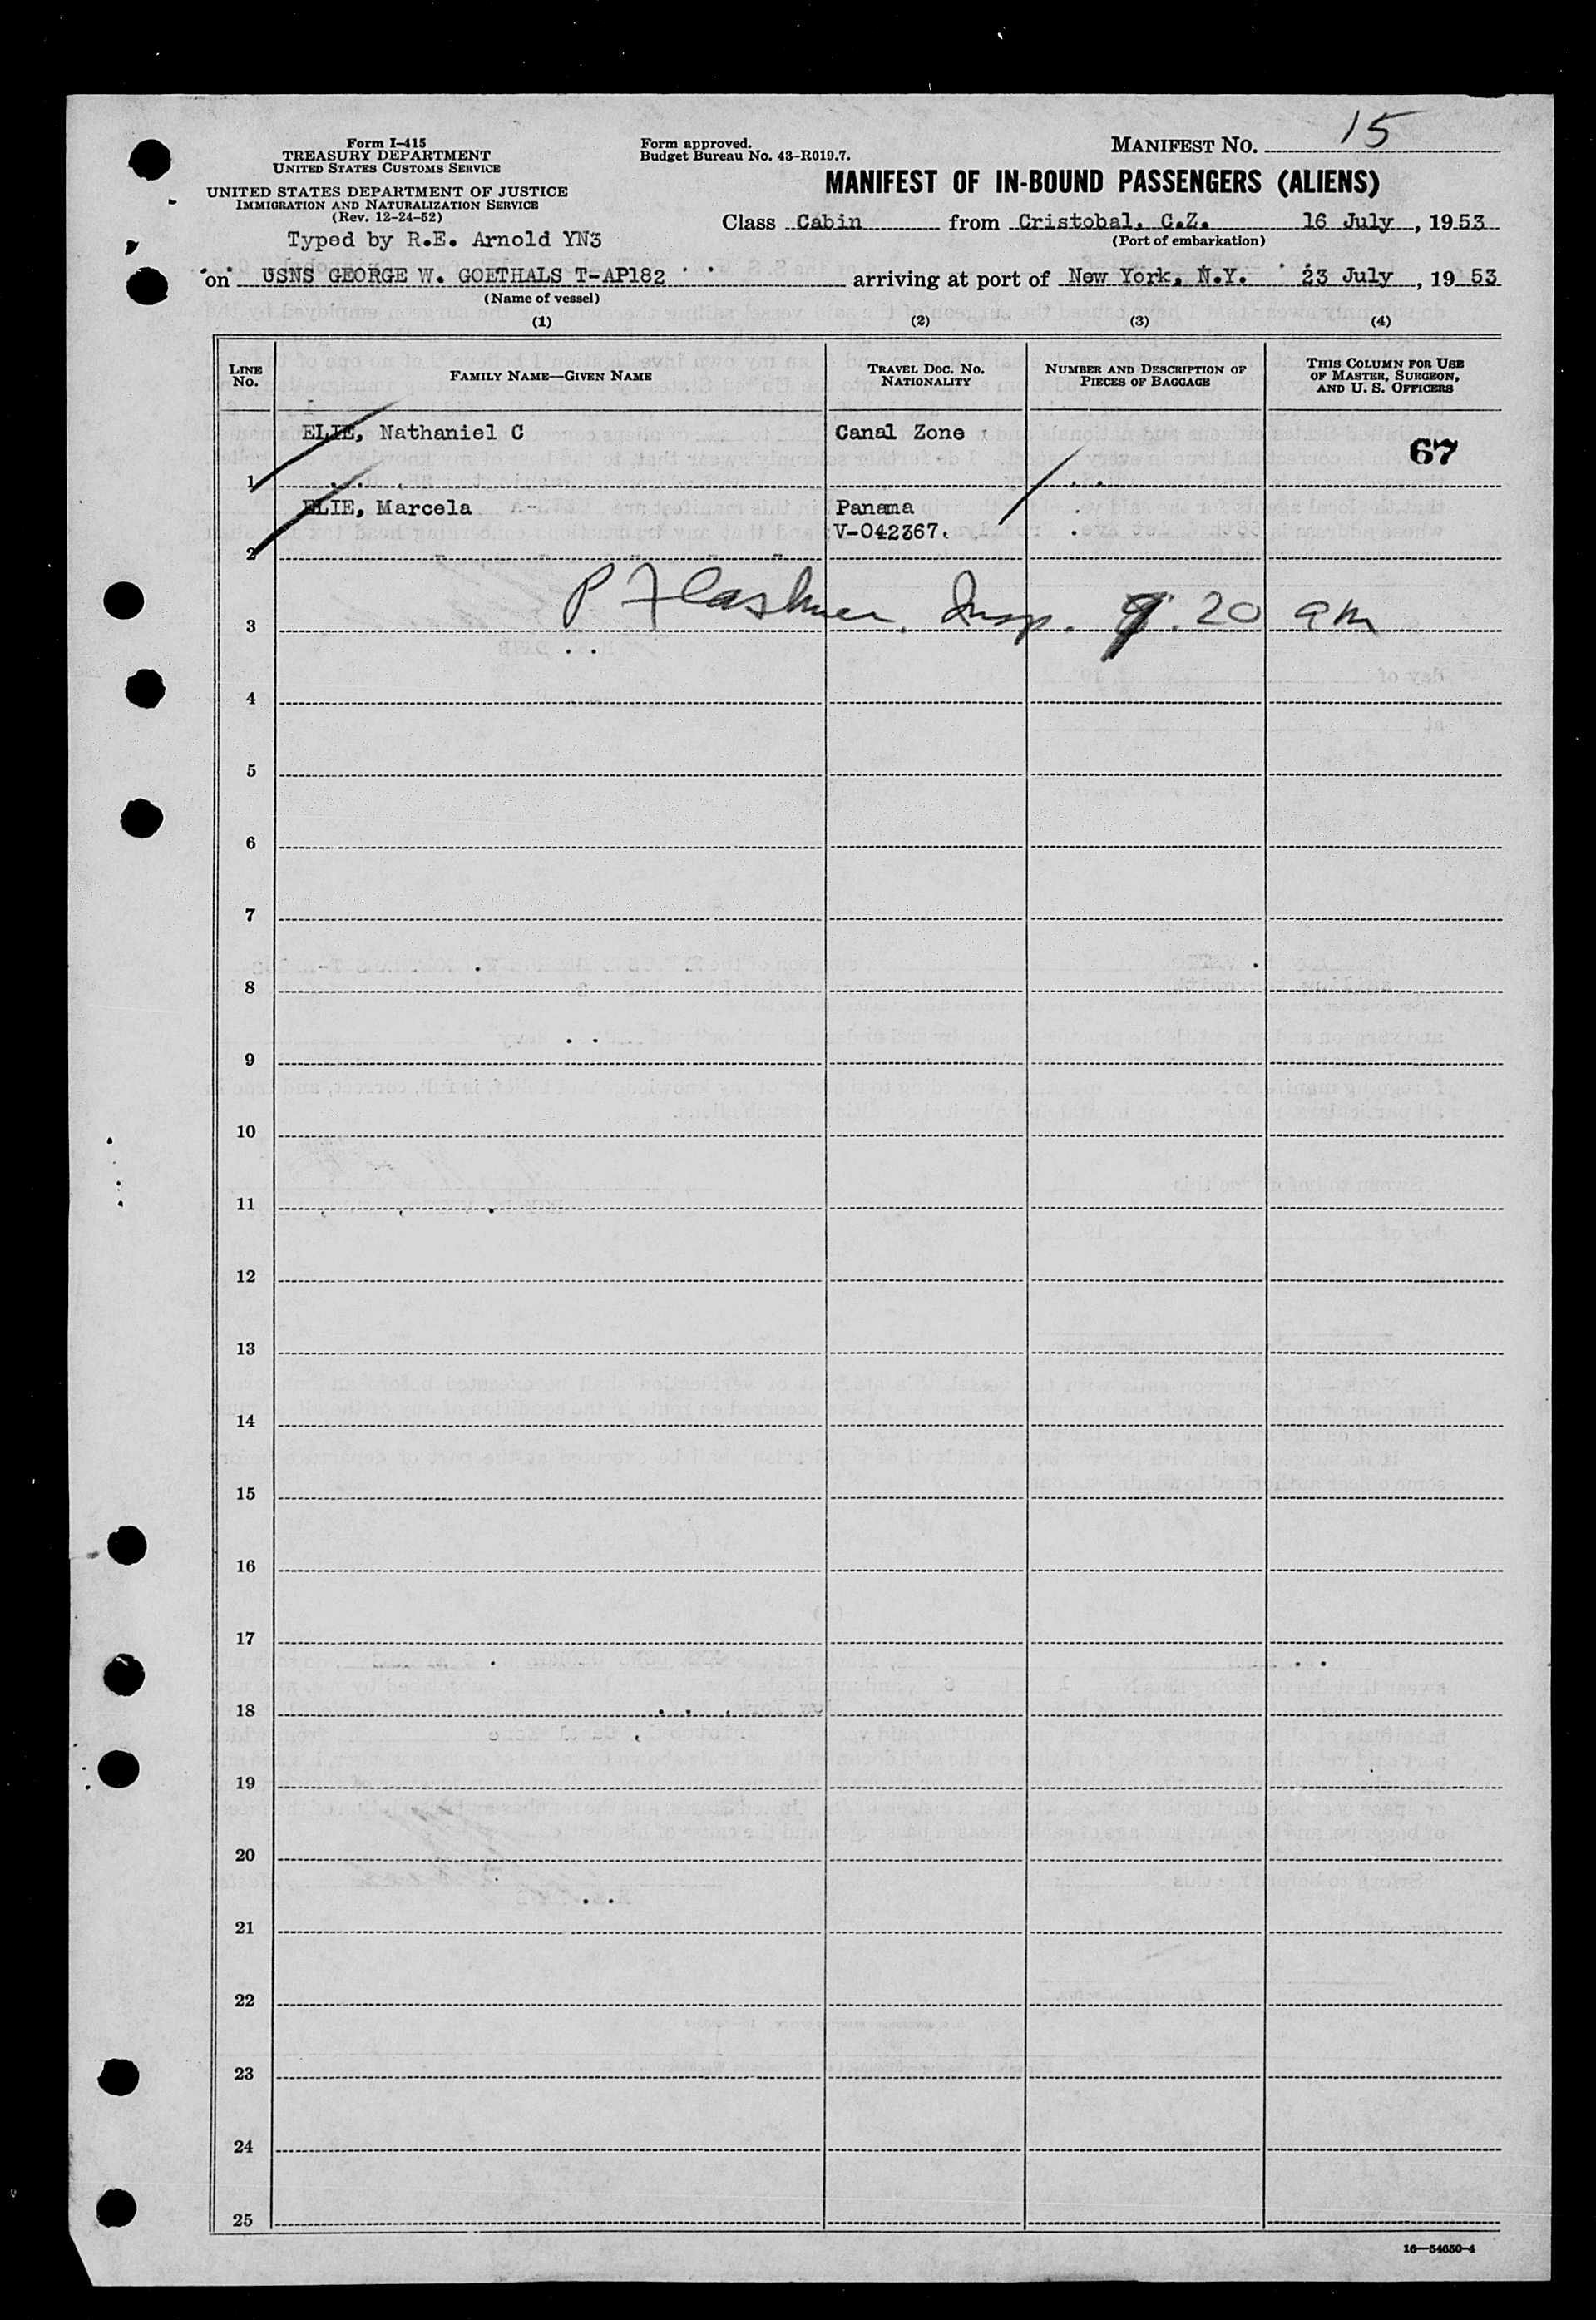 MANIFEST NO. 15
Form I-415
TREASURY DEPARTMENT
UNITED STATES CUSTOMS SERVICE
Form approved.
Budget Bureau No. 43-R019.7.
UNITED STATES DEPARTMENT OF JUSTICE
IMMIGRATION AND NATURALIZATION SERVICE
(Rev. 12-24-52)
MANIFEST OF IN-BOUND PASSENGERS (ALIENS)
Typed by R.E. Arnold YN3
Class Cabin from Cristobal, C.Z. 16 July, 1953
(Port of embarkation)
on USNS GEORGE W. GOETHALS T-AP182 arriving at port of New York, N.Y. 23 July, 1953
(Name of vessel)
(1) (2) (3) (4)
LINE NO. FAMILY NAME—GIVEN NAME TRAVEL DOC. NO. NATIONALITY NUMBER AND DESCRIPTION OF PIECES OF BAGGAGE THIS COLUMN FOR USE OF MASTER, SURGEON, AND U. S. OFFICERS
1 ELIE, Nathaniel C Canal Zone 67
2 ELIE, Marcela Panama
V-042367
3 P Flashner, Insp. 9.20 am
4
5
6
7
8
9
10
11
12
13
14
15
16
17
18
19
20
21
22
23
24
25
16—54650-4